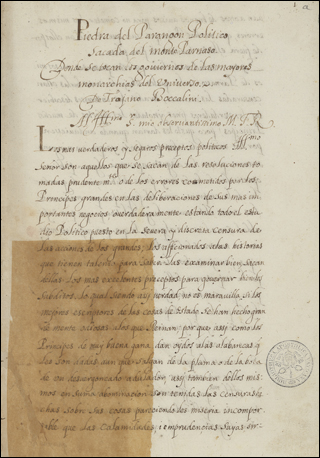 Piedra del Parangon Politico
sacada del monte Parnaso
Donde se tocan los goviernos de las mayores
monarchias del Universo.
De Trajano Boccalini
Ill.mo S.r mio
Los mas verdaderos y seguros preceptos politicos Ill.mo
Señor son aquellos que se sacan de las resoluciones to
madas prudentem.te o de los errores cometidos por los
Principes grandes en las deliberaciones de sus mas im
portantes negocios verdaderamente estando todo el estu
dio Politico puesto en la severa y discreta censura de
las acciones de los grandes, los afficionados a las historias
que tienen talento para saberlas examinar bien, sacan
dellas los mas excelentes preceptos para governar bien los
subditos, lo qual siendo assy verdad no es maravilla si los
mejores escriptores de las cosas de Estado se han hecho gran
de mente odiosos a los que Reinan; por que assy como los
Principes de muy buena gana dan oydos a las alabanças q
les son dadas aun que salgan de la pluma o de la boca
de un desvergonçado adulador, assy tambien dellos mis
mos en suma abominacion son tenidas las censuras
chas sobre sus cosas pareciendoles miseria incompor
table que las calamidades, e imprudencias suyas sir-